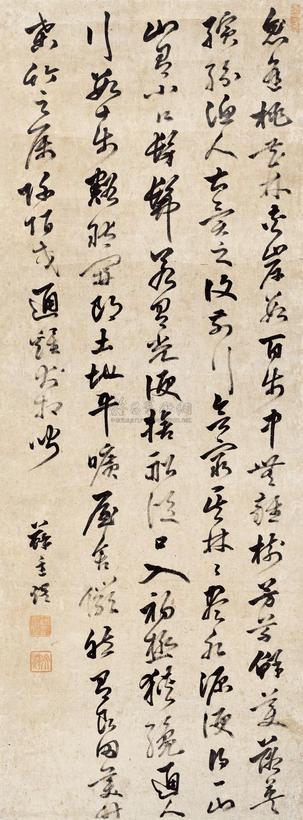 忽逢桃花林夾岸數百步中無雜樹芳草鮮美落英
繽紛漁人甚異之復前行欲窮其林〻盡水源便得一山
山有小口髣髴若有光便捨船從口入初極狹纔通人
行數十步豁然開朗土地平曠屋舍儼然有良田美池
桑竹之屬阡陌交通雞犬相聞